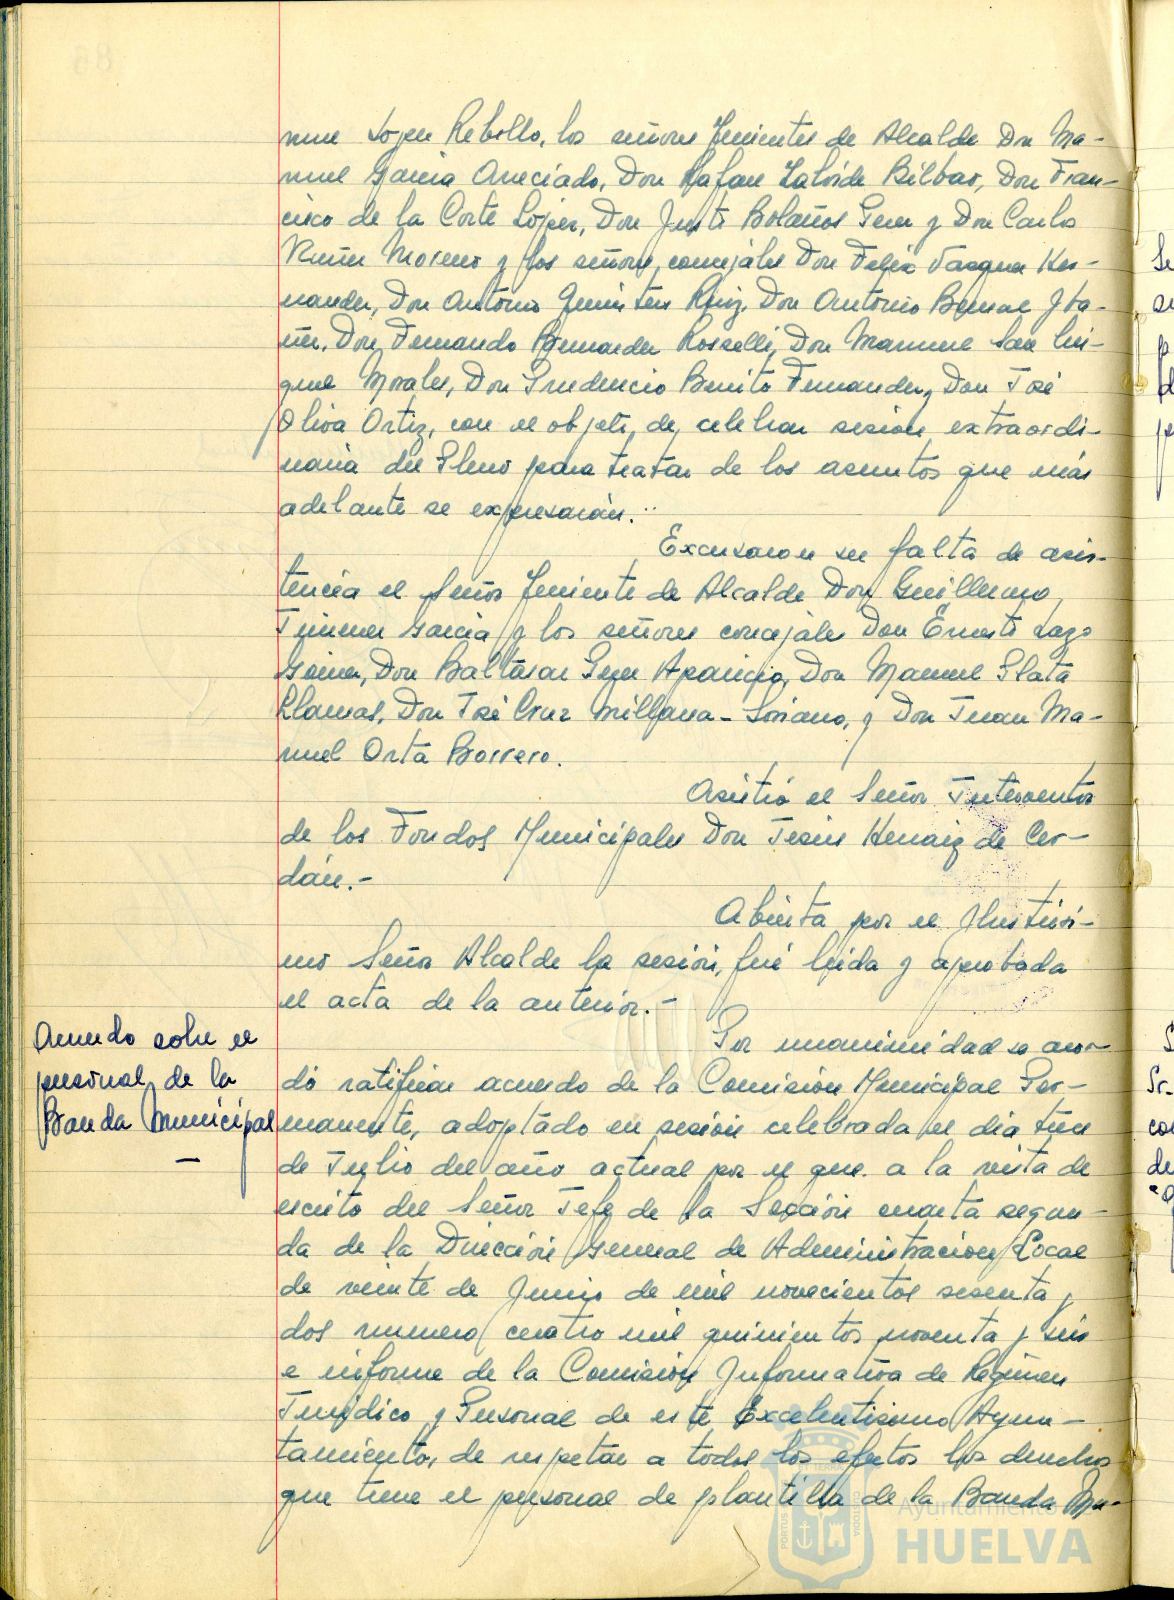 nuel López Rebollo, los señores Tenientes de Alcalde Don Ma-
nuel García Aneciado, Don Rafael Laloide Bilbao, Don Fran-
cisco de la Corte López, Don Justo Bolaños Perez y Don Carlos
Nuñez Moreno y los señores concejales Don Felix Vazquez Her-
nandez, Don Antonio Ruiz, Don Antonio Bernal Iba-
ñez, Don Fernando Bernardez Rosselli, Don Manuel San Mi-
guel Morales, Don Prudencio Benito Fernandez, Don José
Oliva Ortiz, con el objeto de celebrar sesión extraordi-
naria del Pleno para tratar de los asuntos que más
adelante se expresarán.
Excusaron su falta de asis-
tencia el Señor Teniente de Alcalde Don Guillermo
Jimenez García y los señores concejales Don Ernesto Lazo
Don Baltasar Perez Aparicio, Don Manuel Plata
Llamas, Don José Cruz Millana-Soriano, y Don Juan Ma-
nuel Orta Borrero.
Asistió el Señor Interventor
de los Fondos Municipales Don Jesús Hernaiz de Cer-
dán.-
Abierta por el Ilustrísi-
mo Señor Alcalde la sesión, fué leída y aprobada
el acta de la anterior.-
Acuerdo sobre el
personal de la
Banda Municipal
Por unanimidad se acor-
dó ratificar acuerdo de la Comisión Municipal Per-
manente, adoptado en sesión celebrada el dia trece
de Julio del año actual por el que a la vista de
escrito del Señor Jefe de la Sección cuarta segun-
da de la Dirección General de Administración Local
de veinte de Junio de mil novecientos sesenta y
dos numero cuatro mil quinientos noventa y seis
e informe de la Comisión Informativa de Regimen
Juridico y Personal de este Excelentisimo Ayun-
tamiento, de respetar a todos los efectos los derechos
que tiene el personal de plantilla de la Banda Mu-
Ayuntamiento de
HUELVA